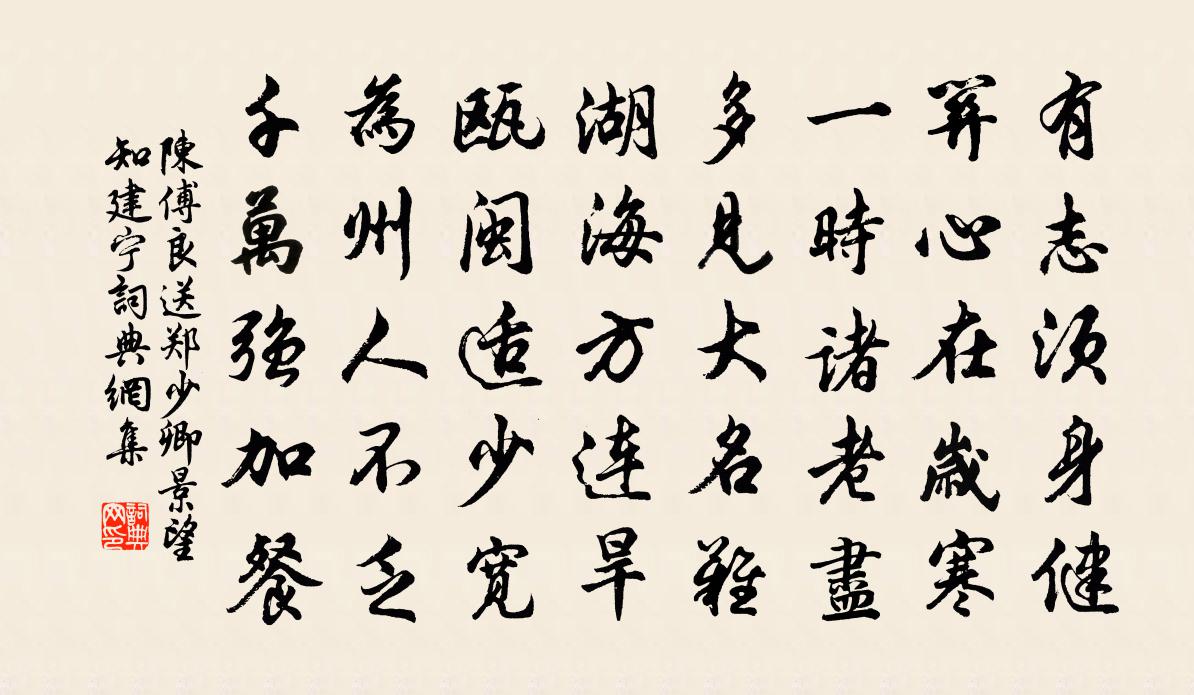 有志须身健
關心在歲寒
一時诸老盡
多見大名難
湖海方连旱
瓯闽适少宽
為州人不乏
千萬強加餐
陳傅良送郑少卿景望
知建宁詞典網集
詞典网印